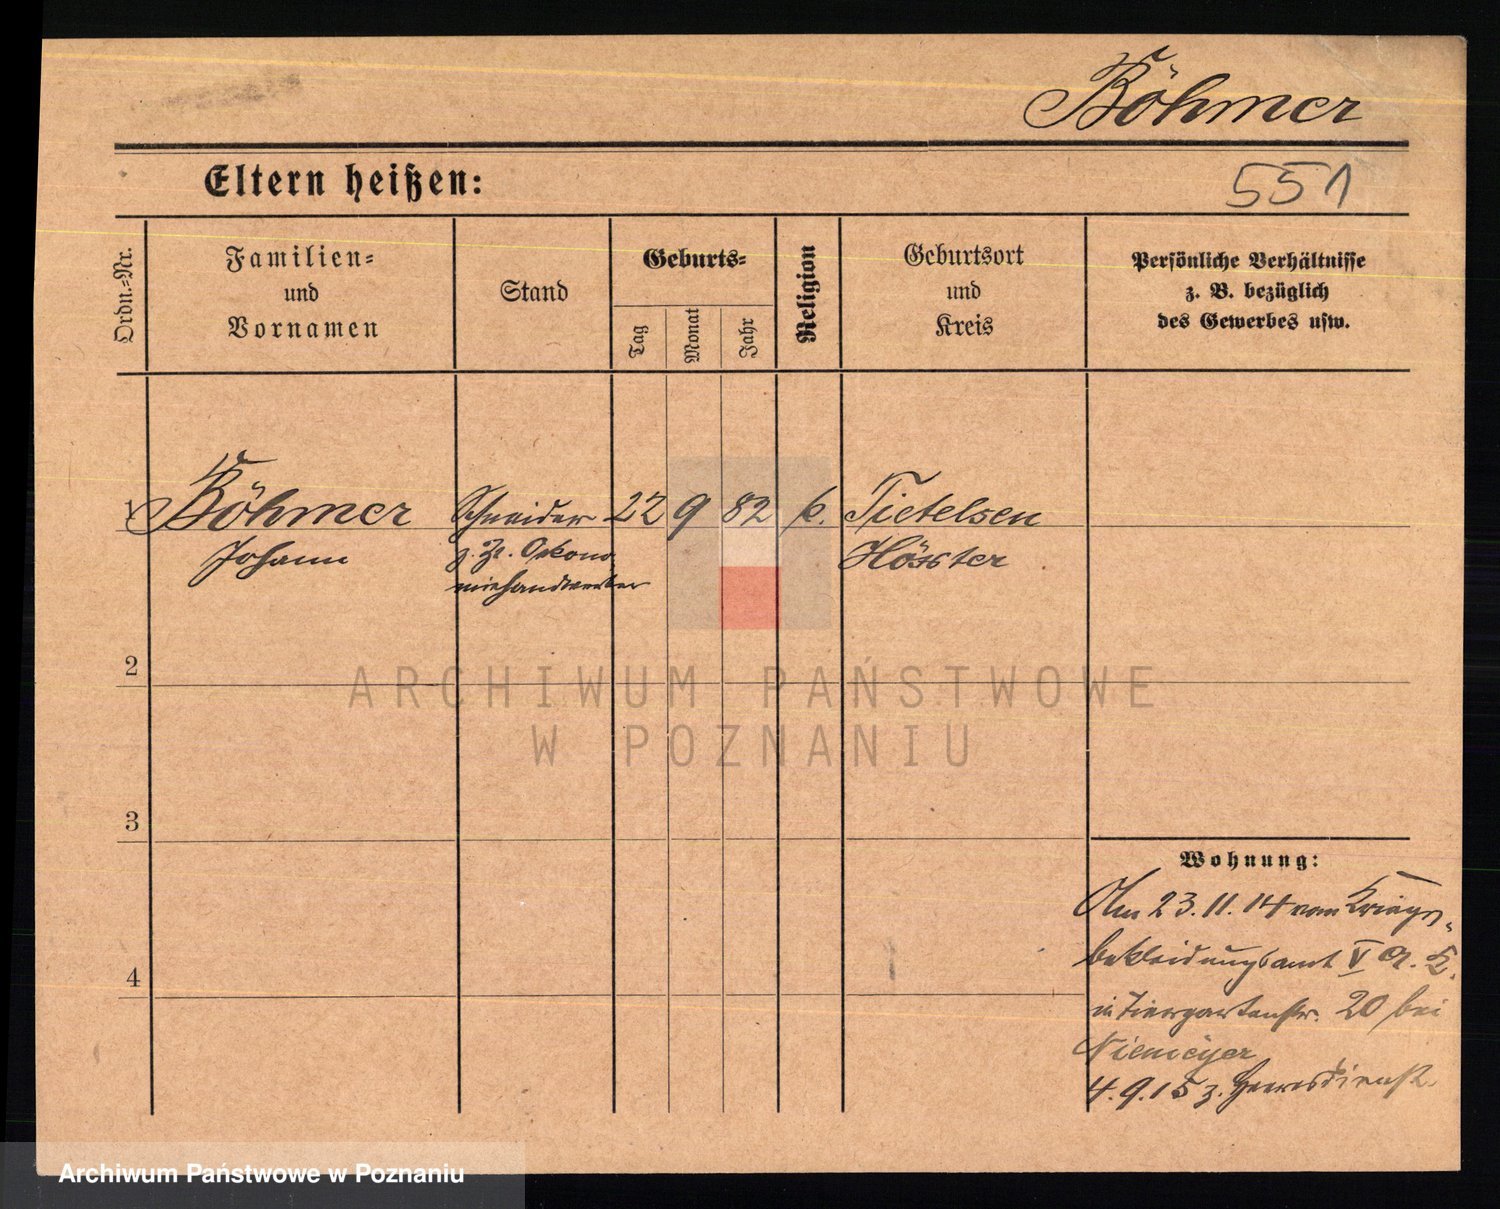 Böhmer
Eltern heißen:
551
Ordn.-Nr.
Familien-
und
Vornamen
Stand
Geburts-
Tag
Monat
Jahr
Religion
Geburtsort
und
Kreis
Persönliche Verhältnisse
z. B. bezüglich
des Gewerbes usw.
1 Böhmer Schneider 22 9 82 k. Tietelsen
Johann z. Zt. Ökono- Höxter
miehandwerker
2
ARCHIWUM PAŃSTWOWE
W POZNANIU
3
Wohnung:
Am 23.11.14 vom Kriegs-
4 bekleidungsamt V A. K.
in Tiergartenstr. 20 bei
Niemeyer
4.9.15 z. Heeresdienst
Archiwum Państwowe w Poznaniu